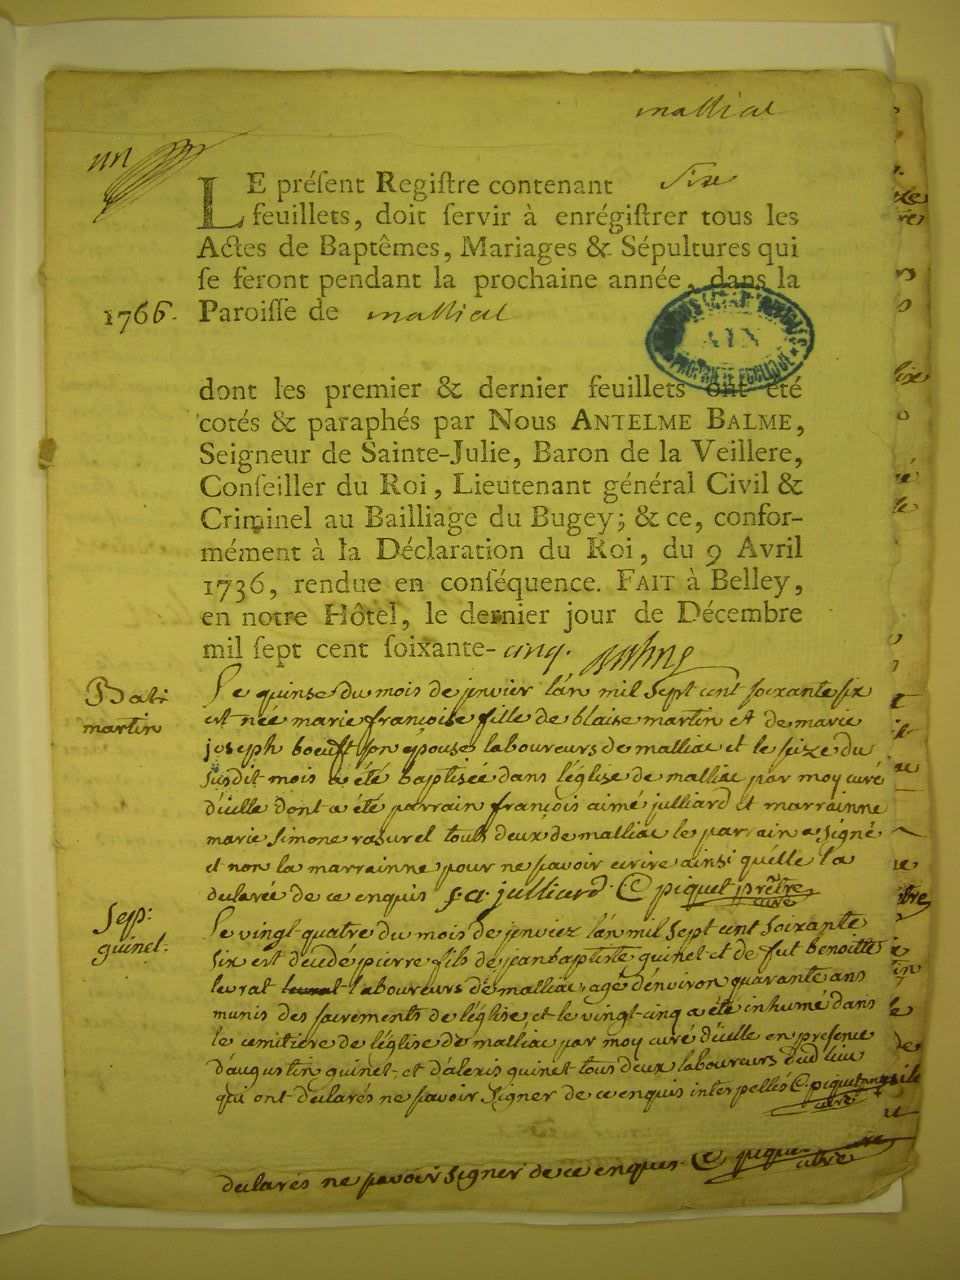 malliat
un
LE préſent Regiſtre contenant Six
feuillets, doit ſervir à enrégiſtrer tous les
Actes de Baptêmes, Mariages & Sépultures qui
ſe feront pendant la prochaine année, dans la
1766. Paroiſſe de malliat
AIN
dont les premier & dernier feuillets ont été
cotés & paraphés par Nous ANTELME BALME,
Seigneur de Sainte-Julie, Baron de la Veillere,
Conſeiller du Roi, Lieutenant général Civil &
Criminel au Bailliage du Bugey; & ce, confor-
mément à la Déclaration du Roi, du 9 Avril
1736, rendue en conſéquence. FAIT à Belley,
en notre Hôtel, le dernier jour de Décembre
mil ſept cent ſoixante-cinq.
Bati
martin
Le quinse du mois de jenvier lan mil sept cent soixante six
est née marie francoise fille de blaise martin et de marie
joseph boeuff son epouse laboureurs de malliac et le seize du
susdit mois a été baptisée dans l'église de malliac par moy curé
d'icelle dont a été parrain françois aimé julliard et marrainne
marie simone rasurel touts deux de malliac le parrain a signé
et non la marrainne pour ne savoir ecrire ainsi qu'elle la
declarée de ce enquis f. a. julliard. C piquet prêtre
curé
Sep:
guinet.
Le vingt-quatre du mois de jenviez lan mil sept cent soixante
six est decedé pierre fils de jean baptiste guinet et de fut benoitte
levrat laboureurs de malliac agé d'environ quarante ans
munis des sacrements de l'église et le vingt-cinq a été inhumé dans
le cemitiere de l'église de malliac par moy curé d'icelle en presence
d'augustin guinet, et d'alexis guinet tous deux laboureurs dud lieu
qui ont declarés ne savoir signer de ce enquis interpellés C. piquet
curé
declarés ne savoir signer de ce enquis C piquet
curé